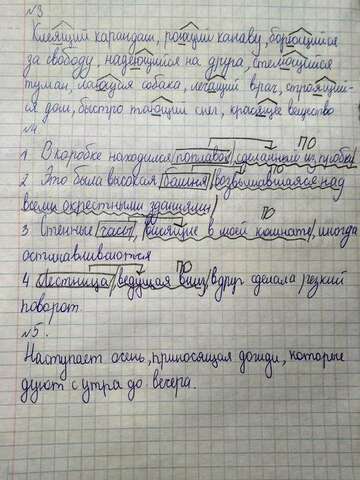 №3
Клеящий карандаш, роющий канаву, борющийся
за свободу, надеющийся на друга, стелющийся
туман, лающая собака, лечащий врач, строящий-
ся дом, быстро тающий снег, красящее вещество
№4
ПО
1 В коробке находился поплавок, сделанный из пробки
2 Это была высокая башня, возвышавшаяся над
всеми окрестными зданиями
ПО
3 Стенные часы, висящие в моей комнате, иногда
останавливаются
ПО
4 Лестница, ведущая вниз, вдруг сделала резкий
поворот
№5.
Наступает осень, приносящая дожди, которые
дуют с утра до вечера.